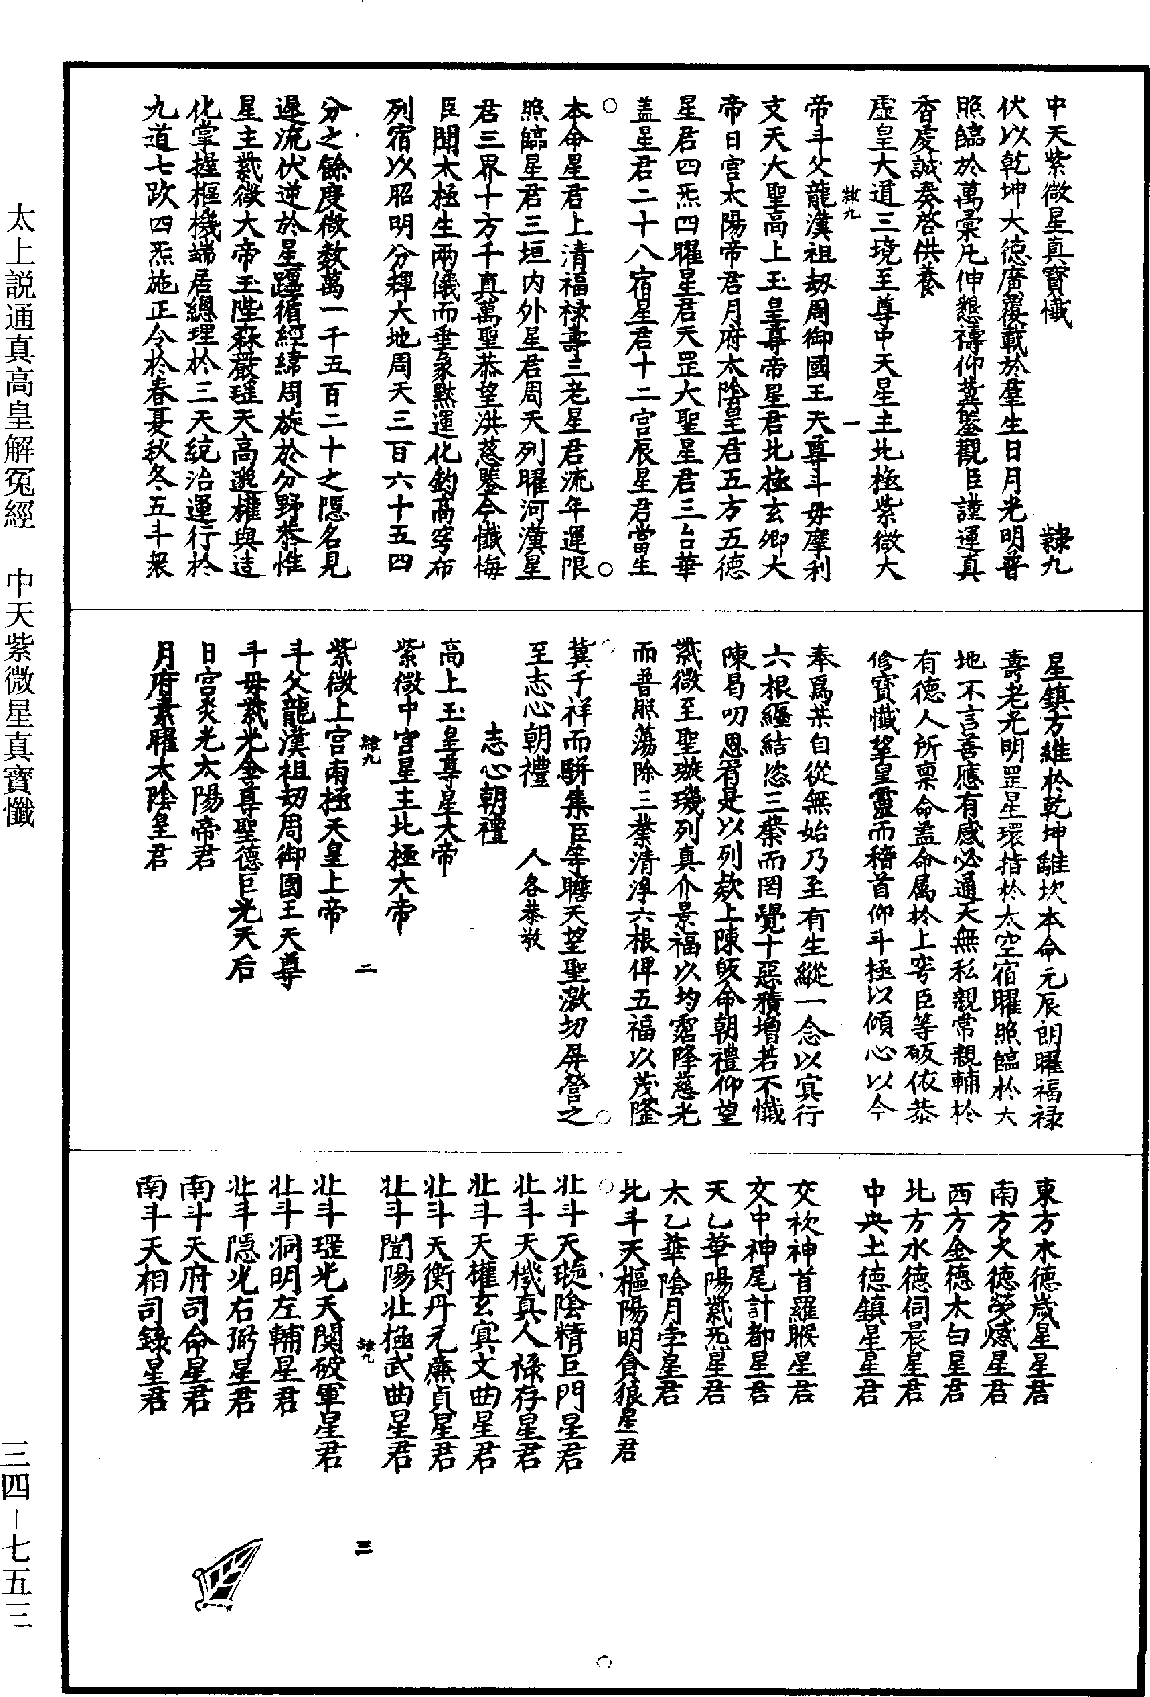 中天紫微星真寶懺 隸九
伏以乾坤大德廣覆載於羣生日月光明普
照臨於萬彙凡伸懇禱仰冀鑒觀臣謹運真
香虔誠奏啓供養
虛皇大道三境至尊中天星主北極紫微大
帝斗父龍漢祖劫周御國王天尊斗母摩利
支天大聖高上玉皇尊帝星君北極玄卿大
帝日宮太陽帝君月府太陰皇君五方五德
星君四炁四曜星君天罡大聖星君三台華
蓋星君二十八宿星君十二宮辰星君當生
本命星君上清福祿壽三老星君流年運限
照臨星君三垣內外星君周天列曜河漢星
君三界十方千真萬聖恭望洪慈鑒今懺悔
臣聞太極生兩儀而垂象黙運化鈞高穹布
列宿以昭明分輝大地周天三百六十五四
分之餘度微數萬一千五百二十之隱名見
遲流伏逆於星躔循經緯周旋於分野恭惟
星主紫微大帝玉陛森嚴瑤天高邈權與造
化掌握樞機端居總理於三天統治運行於
九道七政四炁施正令於春夏秋冬五斗衆
星鎮方維於乾坤離坎本命元辰朗曜福祿
壽老光明罡星環指於太空宿曜照臨於大
地不言善應有感必通天無私親常親輔於
有德人所稟命蓋命属於上穹臣等皈依恭
修寶懺挐皇靈而稽首仰斗極以傾心以今
奉爲某自從無始乃至有生縱一念以寘行
六根纏結恣三業而罔覺十惡積增若不懺
陳曷叨恩宥是以列欵上陳皈命朝禮仰望
紫微至聖璇璣列真介景福以均霑降慈光
而普照蕩除三業清淨六根俾五福以茂隆
冀千祥而駢集臣等瞻天望聖激切屏營之
至志心朝禮 人各恭敬
志心朝禮
高上玉皇尊星大帝
紫微中宮星主北極大帝
紫微上宮南極天皇上帝
斗父龍漢祖劫周御國王天尊
斗母紫光金尊聖德巨光天后
日宮炎光太陽帝君
月府素曜太陰皇君
東方木德歲星星君
南方火德熒惑星君
西方金德太白星君
北方水德伺晨星君
中央土德鎮星星君
交初神首羅睺星君
交中神尾計都星君
天乙華陽紫炁星君
太乙華陰月孛星君
北斗天樞陽明貪狼星君
北斗天璇陰精巨門星君
北斗天機真人祿存星君
北斗天權玄冥文曲星君
北斗天衡丹元廉貞星君
北斗闓陽北極武曲星君
北斗瑤光天關破軍星君
北斗洞明左輔星君
北斗隱光右弼星君
南斗天府司命星君
南斗天相司錄星君
隸九 一
隸九 二
隸九 三
太上説通真高皇解冤經 中天紫微星真寶懺
三四－七五三